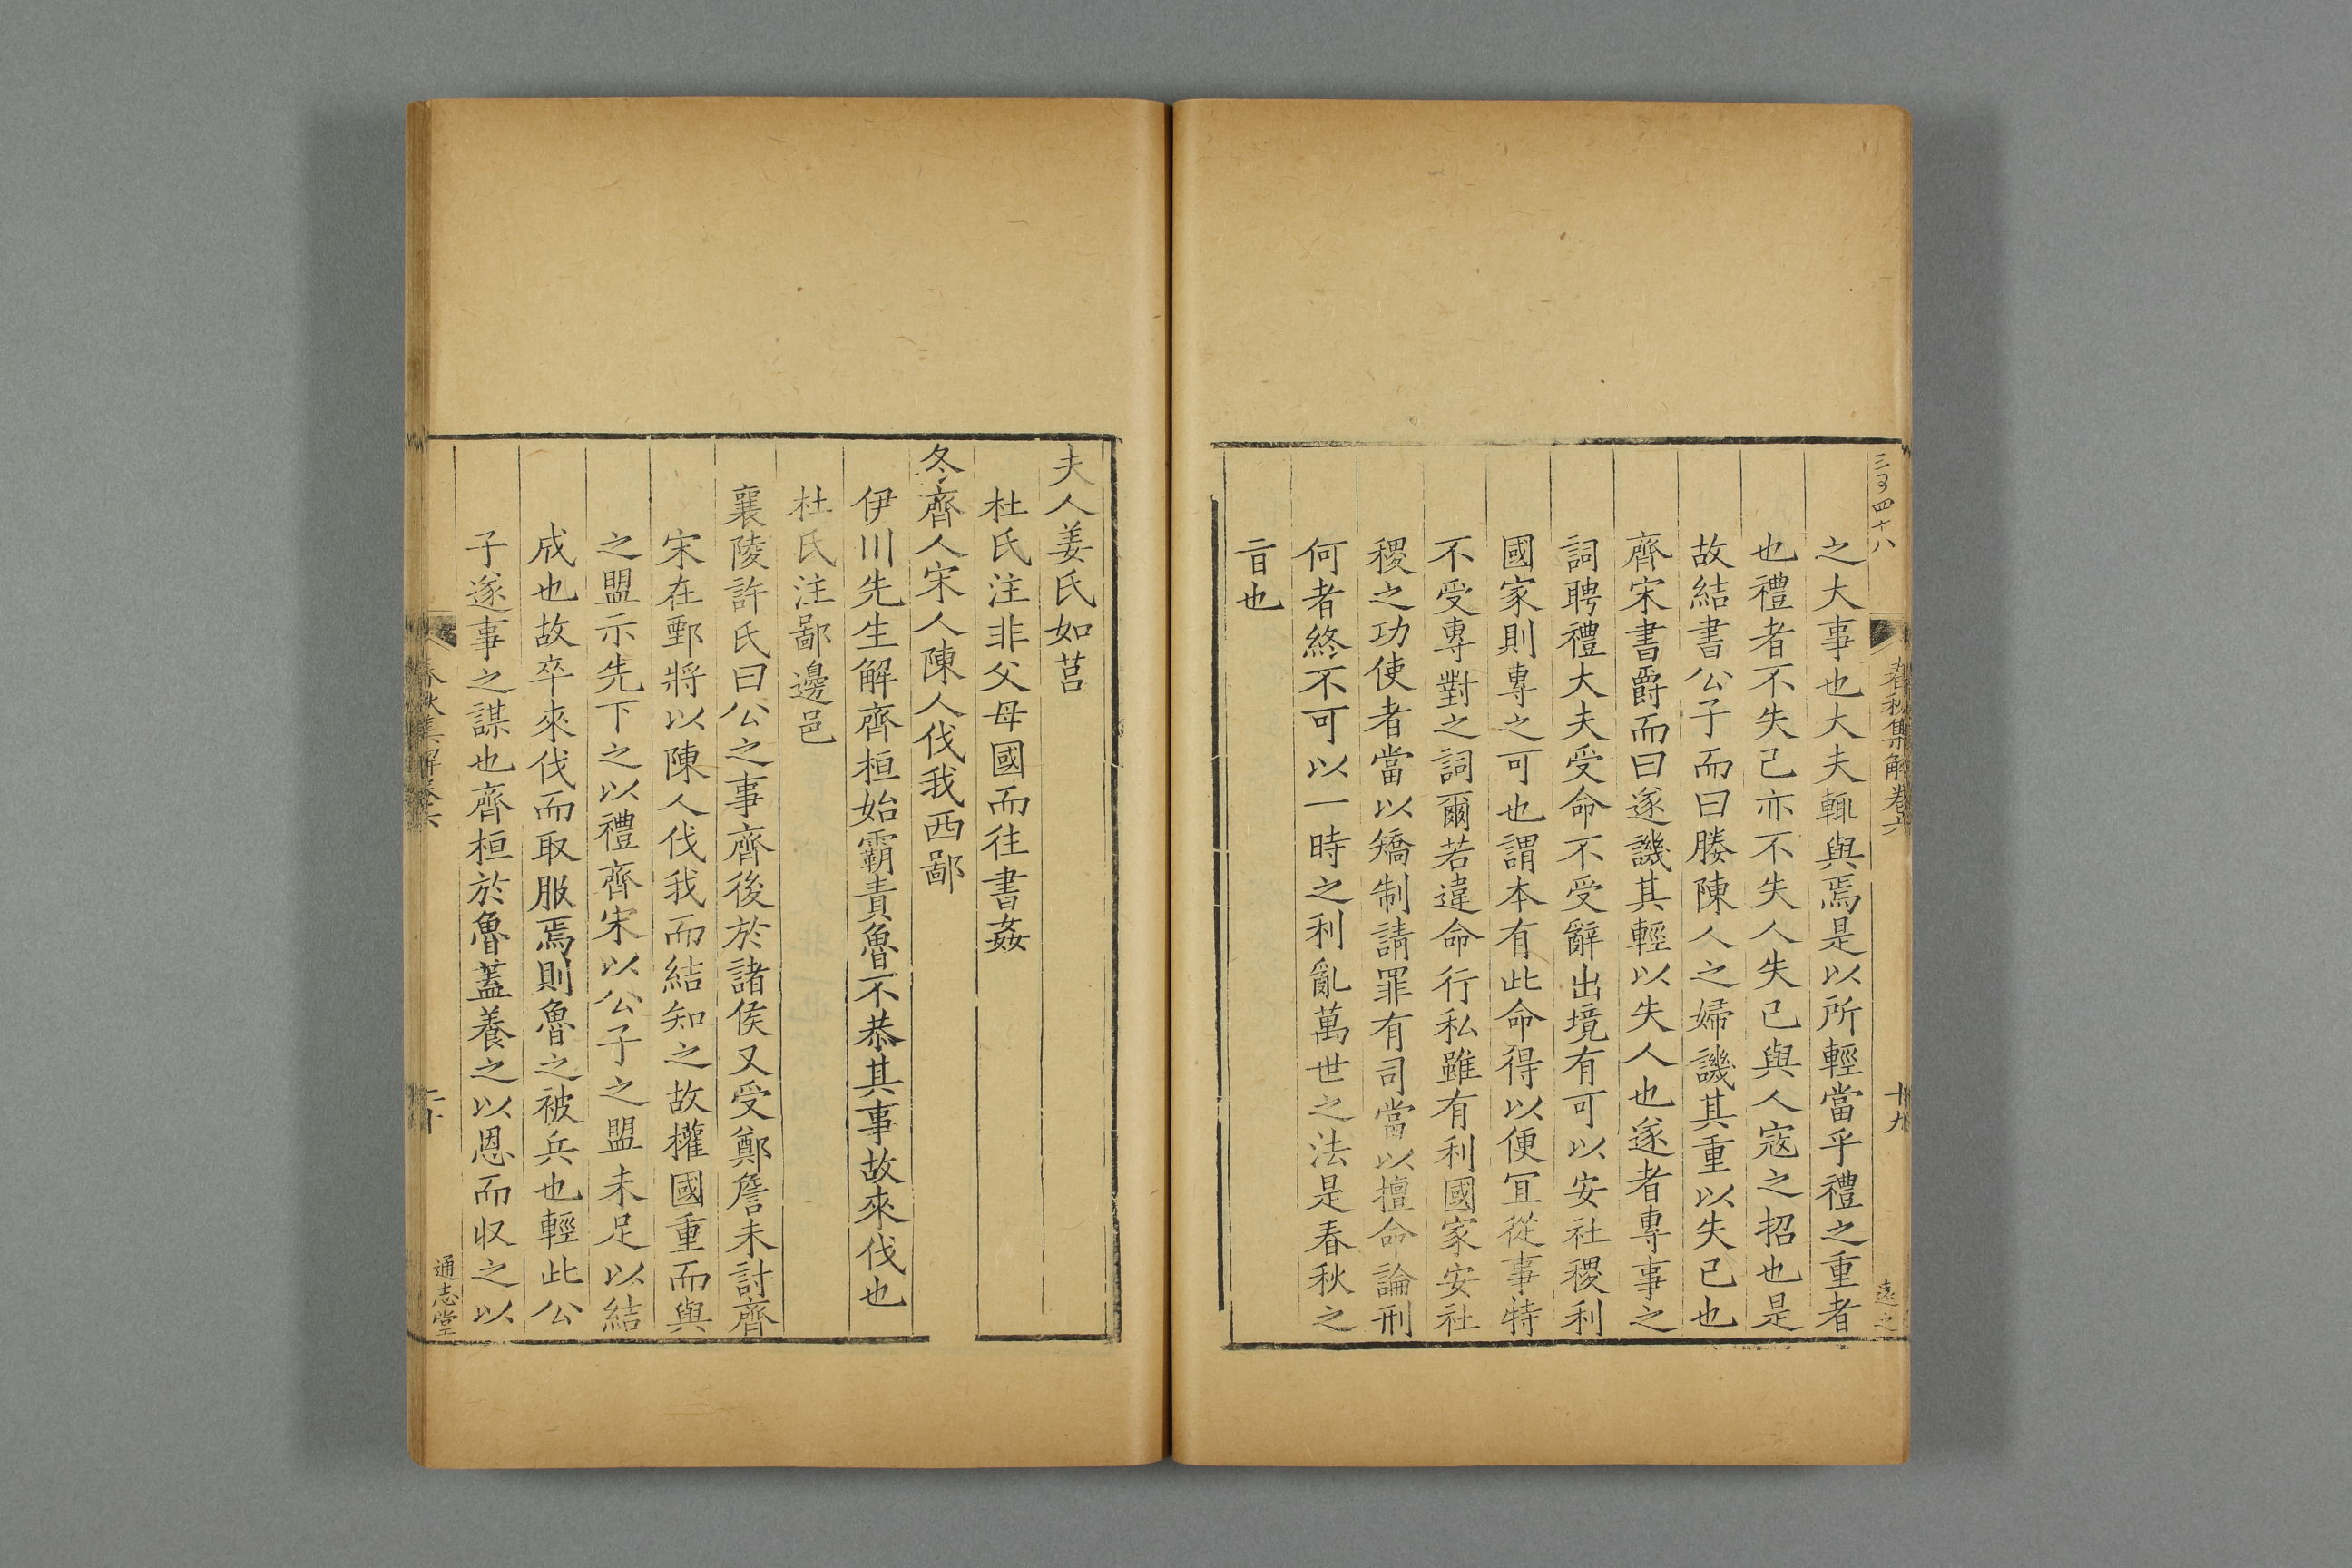 三百四十八
春秋集解卷六
十九
遠之
之大事也大夫輒與焉是以所輕當乎禮之重者
也禮者不失己亦不失人失己與人寇之招也是
故結書公子而曰媵陳人之婦譏其重以失己也
齊宋書爵而曰遂譏其輕以失人也遂者專事之
詞聘禮大夫受命不受辭出境有可以安社稷利
國家則專之可也謂本有此命得以便冝從事特
不受專對之詞爾若違命行私雖有利國家安社
稷之功使者當以矯制請罪有司當以擅命論刑
何者終不可以一時之利亂萬世之法是春秋之
㫖也
夫人姜氏如莒
杜氏注非父母國而往書姦
冬齊人宋人陳人伐我西鄙
伊川先生解齊桓始霸責魯不恭其事故來伐也
杜氏注鄙邊邑
襄陵許氏曰公之事齊後於諸侯又受鄭詹未討齊
宋在鄄將以陳人伐我而結知之故權國重而與
之盟示先下之以禮齊宋以公子之盟未足以結
成也故卒來伐而取服焉則魯之被兵也輕此公
子遂事之謀也齊桓於魯蓋養之以恩而収之以
春秋集解卷六
二十
通志堂